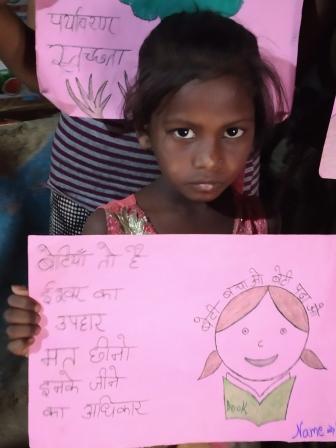 पर्यावरण
स्वच्छता
बेटियाँ तो है
ईश्वर का
उपहार
मत छीनो
इनके जीने
का अधिकार
बेटी बचाओ बेटी पढ़ाओ
BOOK
Name